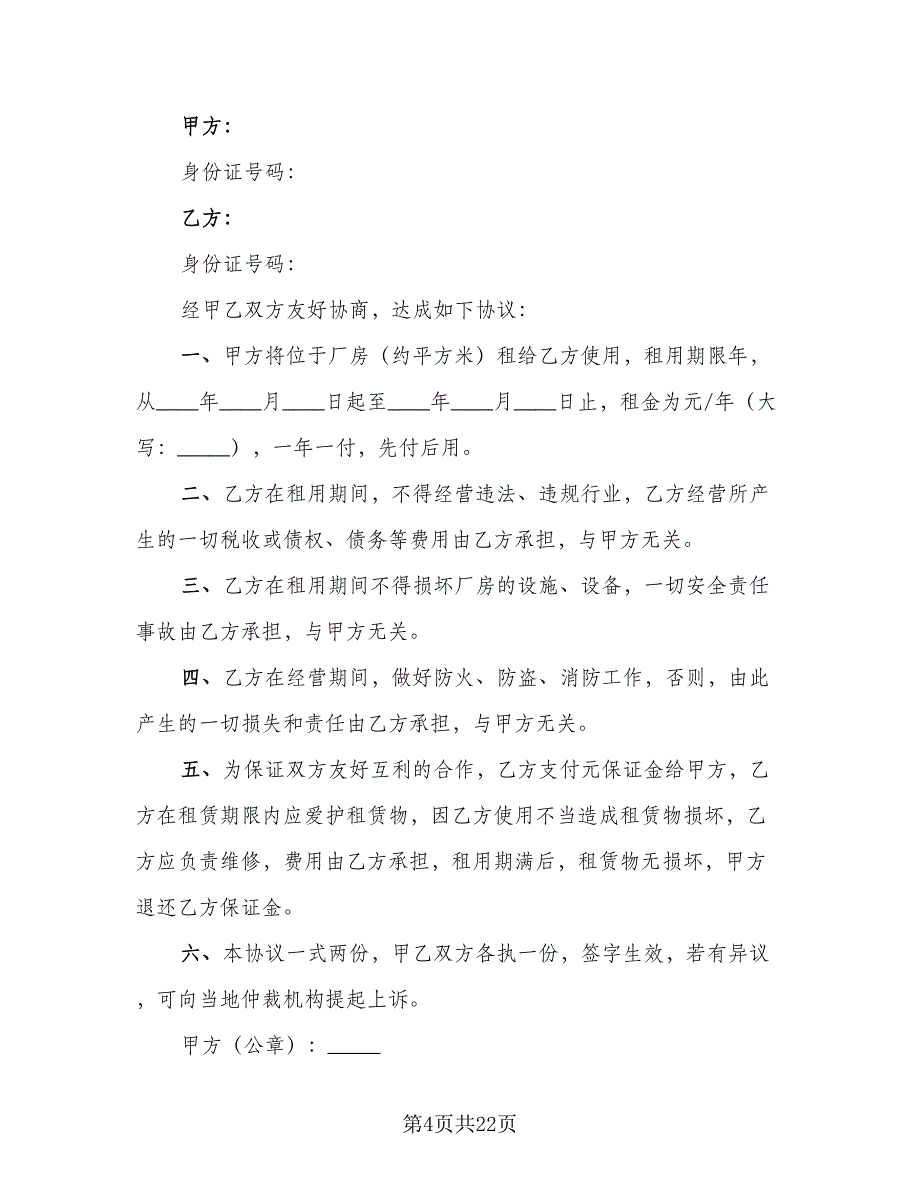 甲方：
身份证号码：
乙方：
身份证号码：
经甲乙双方友好协商，达成如下协议：
一、甲方将位于厂房（约平方米）租给乙方使用，租用期限年，
从____年____月____日起至____年____月____日止，租金为元/年（大
写：_____），一年一付，先付后用。
二、乙方在租用期间，不得经营违法、违规行业，乙方经营所产
生的一切税收或债权、债务等费用由乙方承担，与甲方无关。
三、乙方在租用期间不得损坏厂房的设施、设备，一切安全责任
事故由乙方承担，与甲方无关。
四、乙方在经营期间，做好防火、防盗、消防工作，否则，由此
产生的一切损失和责任由乙方承担，与甲方无关。
五、为保证双方友好互利的合作，乙方支付元保证金给甲方，乙
方在租赁期限内应爱护租赁物，因乙方使用不当造成租赁物损坏，乙
方应负责维修，费用由乙方承担，租用期满后，租赁物无损坏，甲方
退还乙方保证金。
六、本协议一式两份，甲乙双方各执一份，签字生效，若有异议
，可向当地仲裁机构提起上诉。
甲方（公章）：_____
第4页共22页